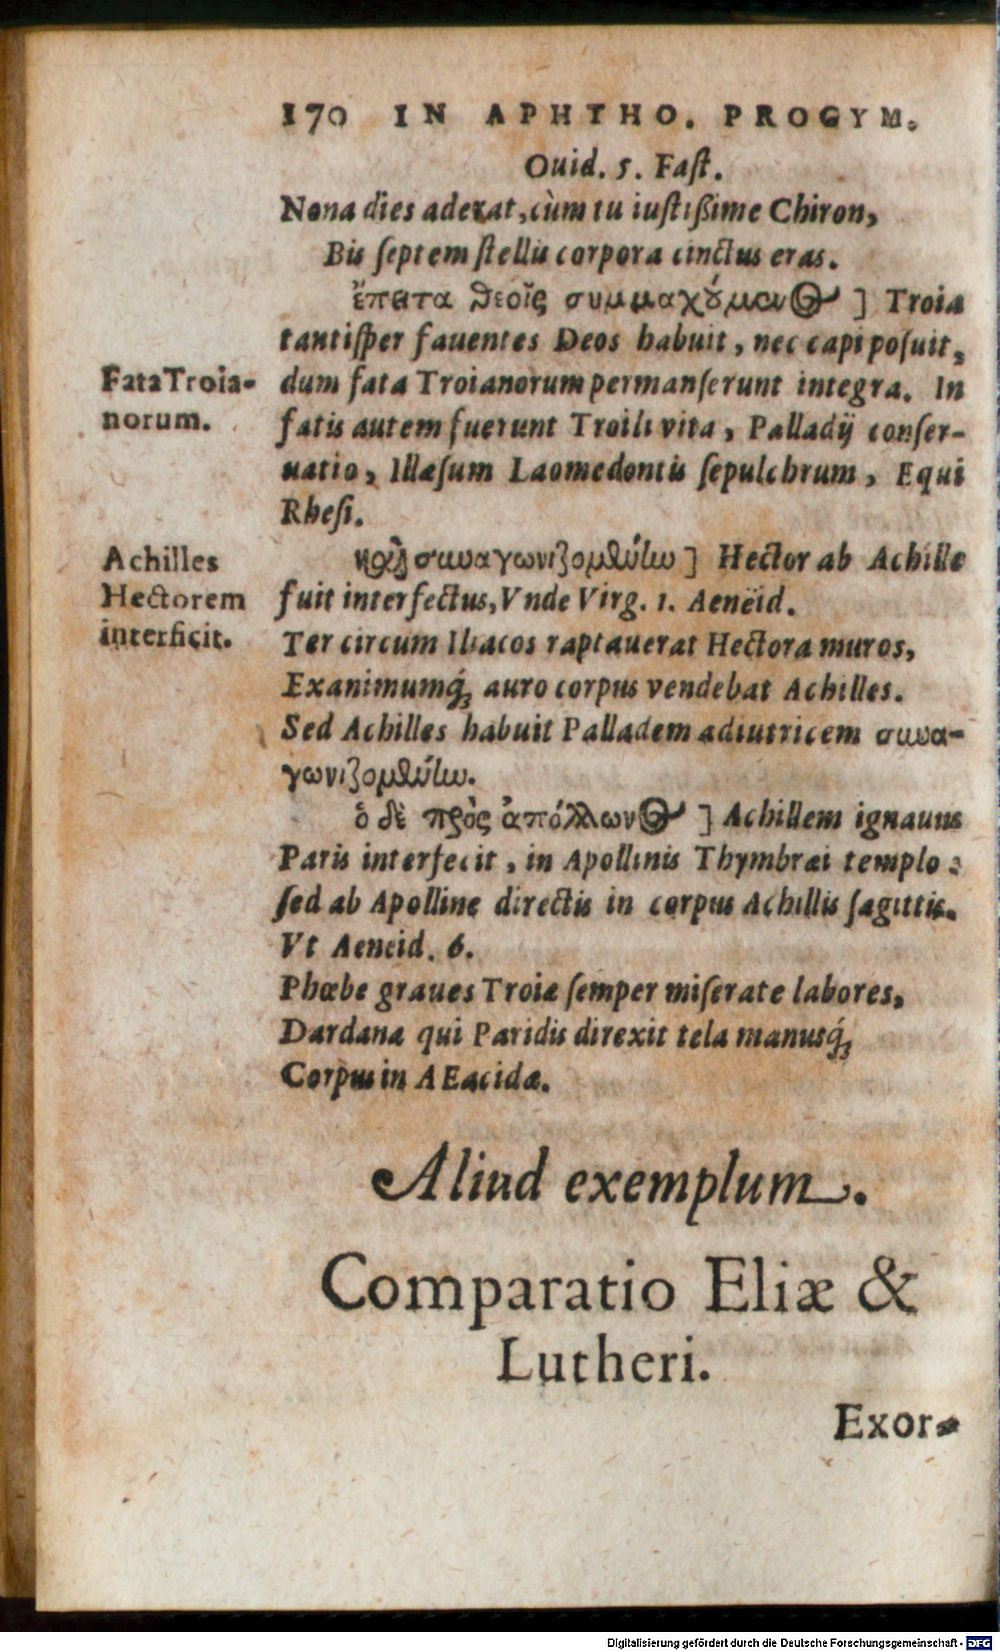 170 IN APHTHO. PROGYM.
Ouid. 5. Fast.
Nona dies aderat, cùm tu iustißime Chiron,
Bis septem stellis corpora cinctus eras.
ἔπειτα θεοῖς συμμαχούμενος ] Troia
tantisper fauentes Deos habuit, nec capi posuit,
dum fata Troianorum permanserunt integra. In
fatis autem fuerunt Troili vita, Palladij conser-
uatio, Illæsum Laomedontis sepulchrum, Equi
Rhesi.
Fata Troia-
norum.
καὶ συναγωνιζομένην ] Hector ab Achille
fuit interfectus, Vnde Virg. 1. Aeneïd.
Ter circum Iliacos raptauerat Hectora muros,
Exanimumq́; auro corpus vendebat Achilles.
Sed Achilles habuit Palladem adiutricem συνα-
γωνιζομένην.
Achilles
Hectorem
interficit.
ὁ δὲ πρὸς ἀπόλλωνος ] Achillem ignauus
Paris interfecit, in Apollinis Thymbræi templo:
sed ab Apolline directis in corpus Achillis sagittis.
Vt Aeneid. 6.
Phœbe graues Troiæ semper miserate labores,
Dardana qui Paridis direxit tela manusq́;
Corpus in AEacidæ.
Aliud exemplum.
Comparatio Eliæ &
Lutheri.
Exor-
Digitalisierung gefördert durch die Deutsche Forschungsgemeinschaft - DFG